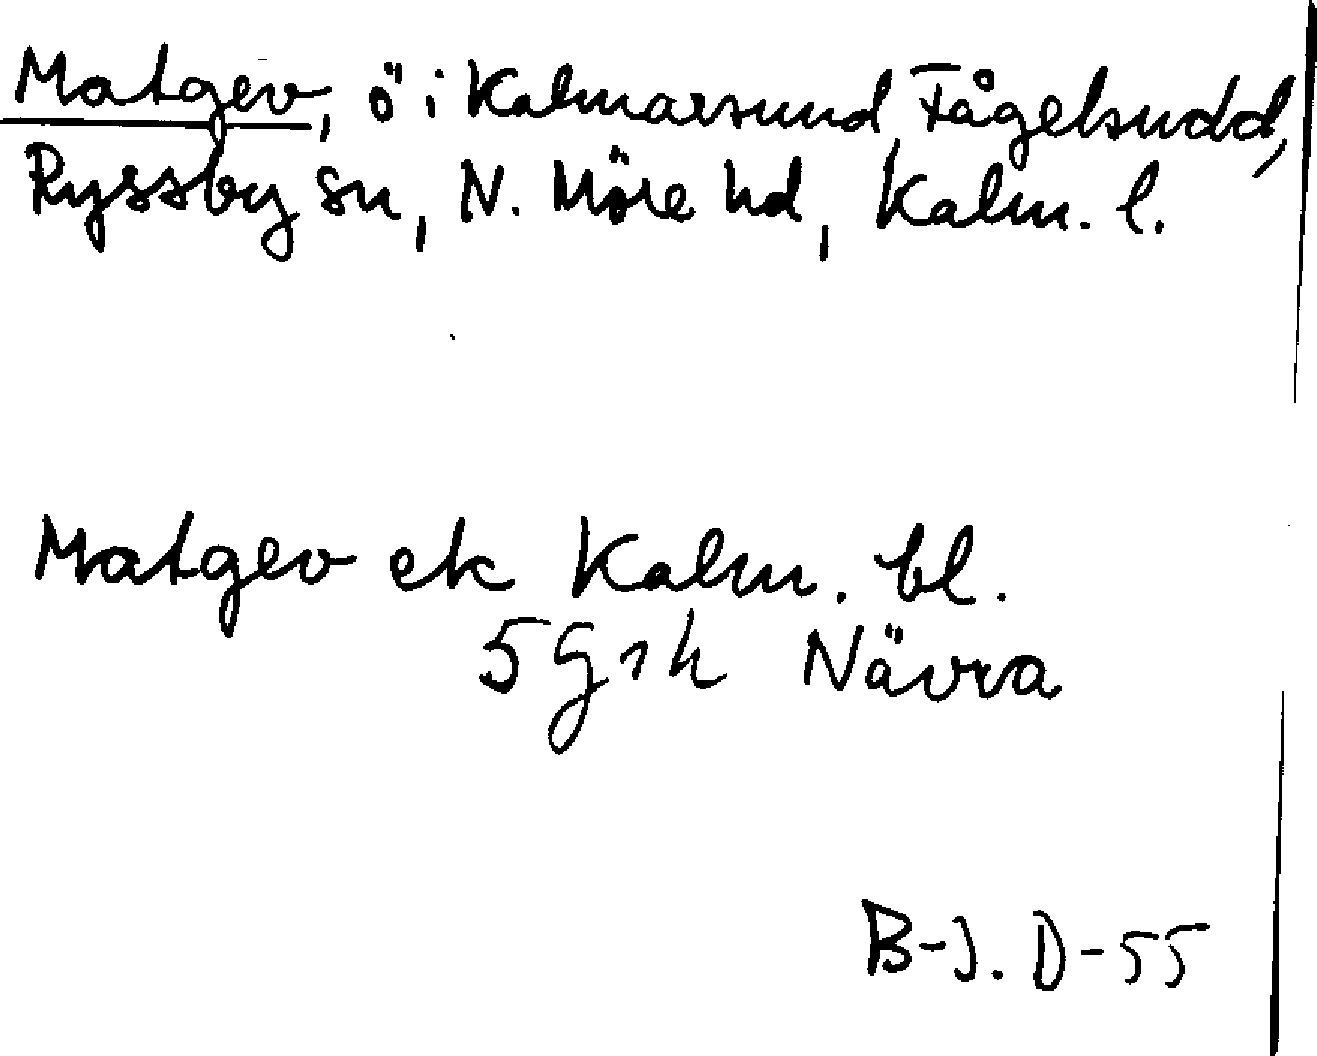 Matgev, ö i Kalmarsund, Fågelsudd,
Ryssby sn, N. Möre hd, Kalm. l.
Matgev ek Kalm. bl.
5G1h Nävra
B-J. D-55